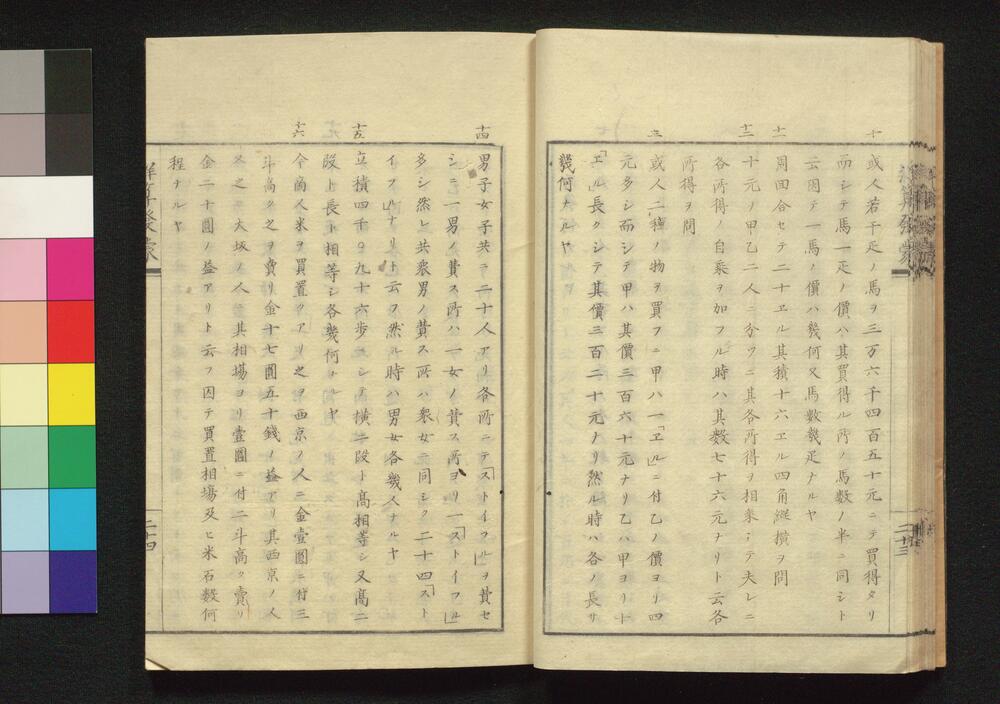 十
或人若干疋ノ馬ヲ三万六千四百五十元ニテ買得タリ
而シテ馬一疋ノ價ハ其買得ル所ノ馬数ノ半ニ同シト
云因テ一馬ノ價ハ幾何又馬数幾疋ナルヤ
十一
周囲合セテ二十ヱル其積十六ヱル四角縦横ヲ問
十二
十元ノ甲乙二人ニ分ツニ其各所得ヲ相乗シテ夫レニ
各所得ノ自乗ヲ加フル時ハ其数七十六元ナリト云各
所得ヲ問
十三
或人二種ノ物ヲ買フニ甲ハ一「ヱル」ニ付乙ノ價ヨリ四
元多シ而シテ甲ハ其價三百六十元ナリ乙ハ甲ヨリ十
「ヱル」長クシテ其價三百二十元ナリ然ル時ハ各ノ長サ
幾何ナルヤ
二十三
十四
男子女子共ニ二十人アリ各所ニテ「ストイフル」ヲ費セ
シニ一男ノ費ス所ハ一女ノ費ス所ヨリ一「ストイフル」
多シ然ト共衆男ノ費ス所ハ衆女ニ同シク二十四「スト
イフル」ナリト云フ然ル時ハ男女各幾人ナルヤ
十五
立積四千〇九十六歩ニシテ横二段ト高相等シ又高二
段ト長ト相等シ各幾何ナルヤ
十六
今商人米ヲ買置クアリ之ヲ西京ノ人ニ金壹圓ニ付三
斗高ク之ヲ賣リ金十七圓五十錢ノ益アリ其西京ノ人
又之ヲ大坂ノ人ニ其相場ヨリ壹圓ニ付二斗高ク賣リ
金二十圓ノ益アリト云フ因テ買置相場及ヒ米石数何
程ナルヤ
洋算發蒙
二十四